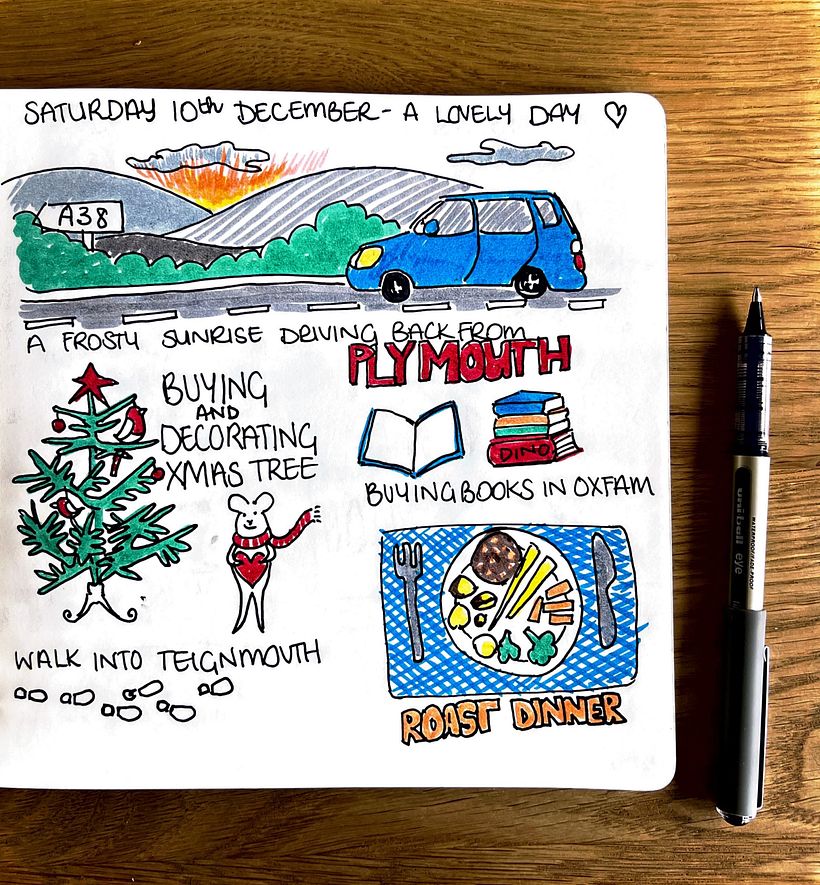 SATURDAY 10th DECEMBER - A LOVELY DAY ♡
A38
A FROSTY SUNRISE DRIVING BACK FROM
PLYMOUTH
BUYING
AND
DECORATING
XMAS TREE
DINO
BUYING BOOKS IN OXFAM
WALK INTO TEIGNMOUTH
ROAST DINNER
uniball eye